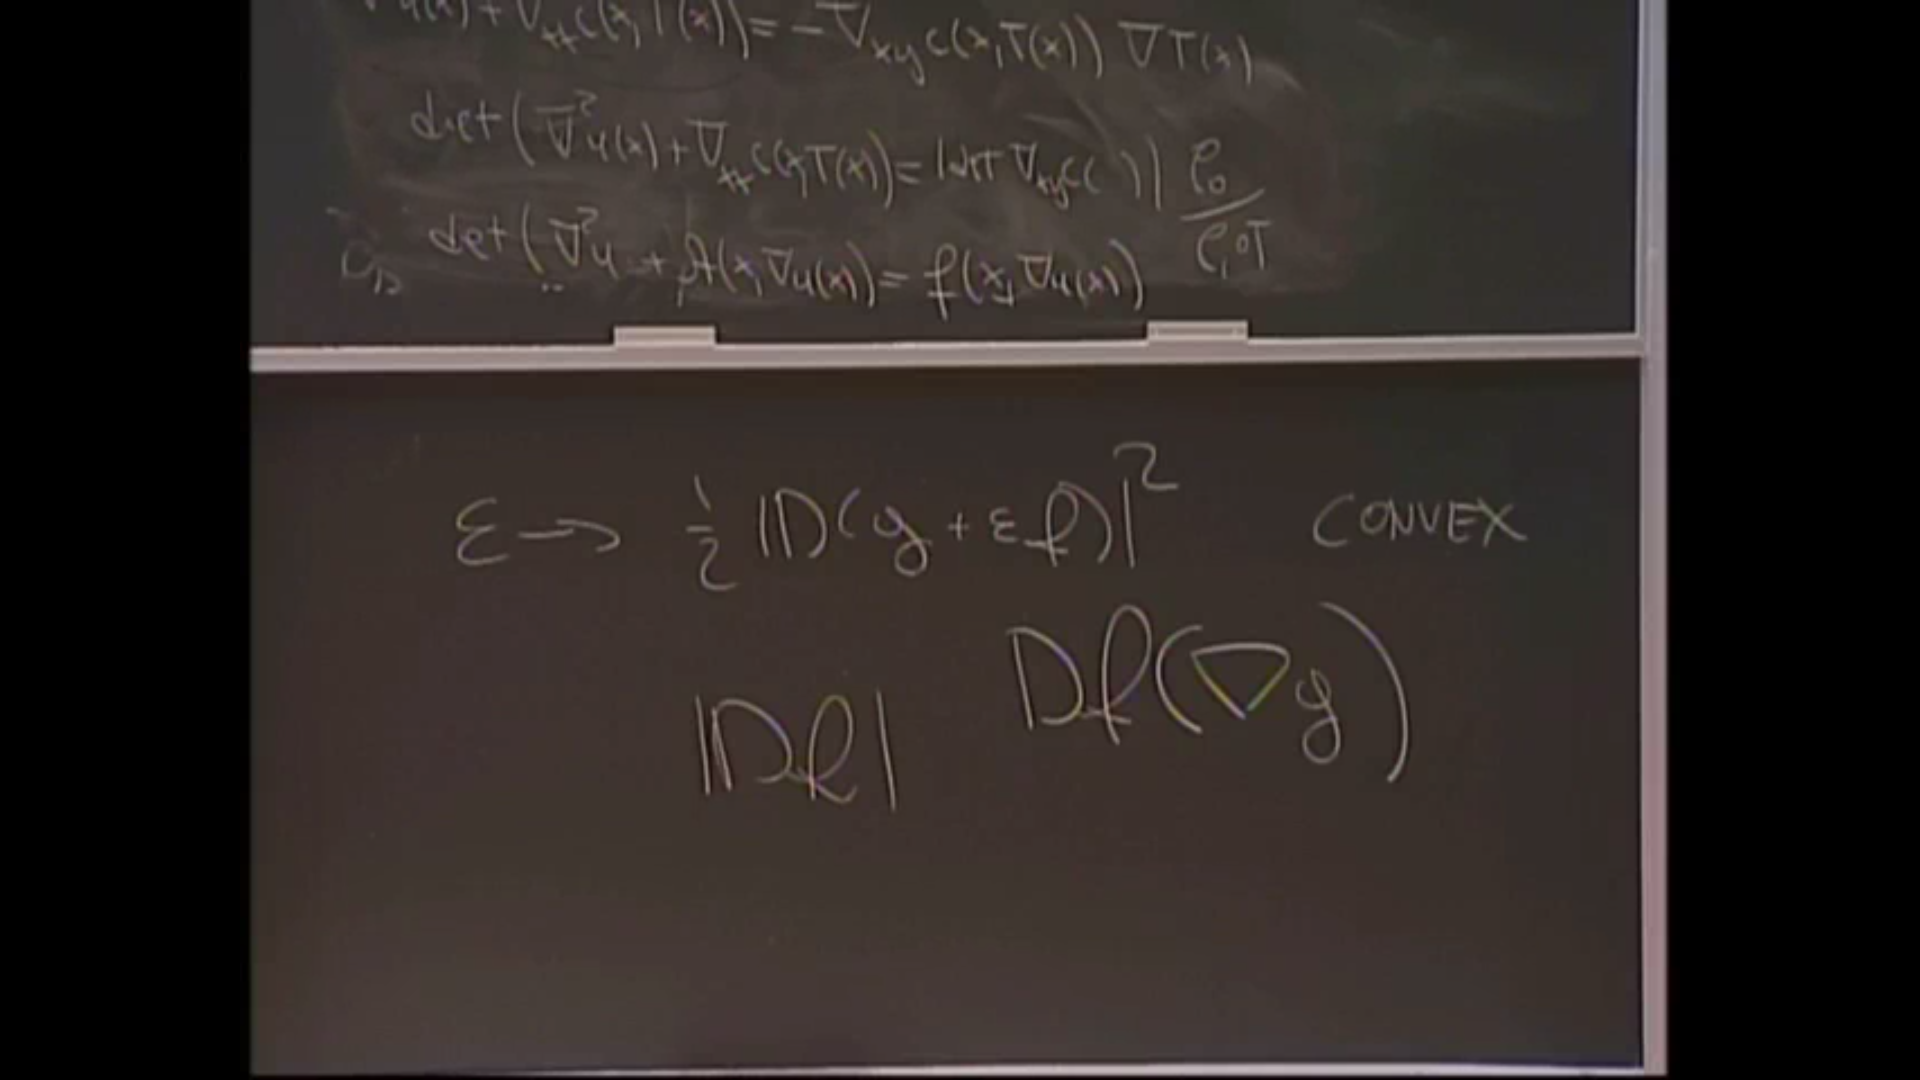 ∇²u(x) + ∇ₓₓc(x,T(x)) = -∇ₓᵧc(x,T(x)) ∇T(x)
det(∇²u(x) + ∇ₓₓc(x,T(x)) = |det ∇ₓᵧc( )| ρ₀/ρ₁∘T
det(∇²u + A(x,∇u(x)) = f(x,∇u(x))
ε → ½ |D(g + εf)|² CONVEX
Df(∇g)
|Df|